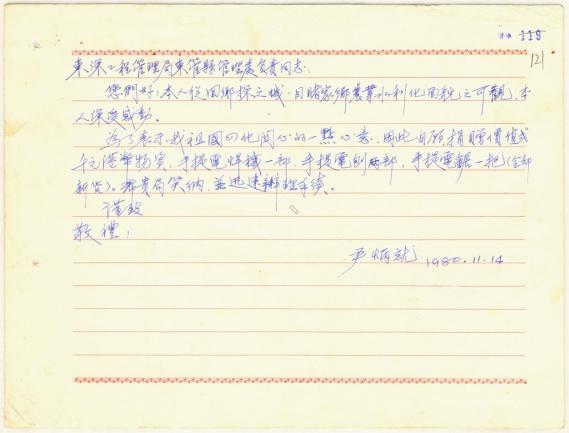 119
121
東深工程管理局東管縣管理處負責同志:
您們好!本人從回鄉探之城,目睹家鄉農業水利化面貌之可觀,本
人深受感動。
為了表示我祖國四化關心的一點心意,因此自願捐贈價值弍
千元港幣物資,手提電焊機一部,手提電刨兩部,手提電鋸一把(全部
新貨)。希貴局笑納,並迅速辦理手續。
謹致
敬禮!
尹炳就 1980.11.14